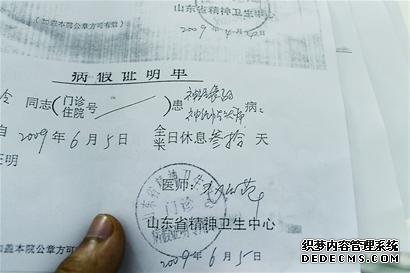 (加盖本院公章方可有效)
山东省精神卫生中心
2009年6月
病假证明单
同志(门诊号 住院)患 神经衰弱 病:
自2009年6月5日 全 半 日休息叁拾天
证明
医师:
山东省精神卫生中心
2009年6月5日
加盖本院公章方可
山东省精神卫生
门诊
病假证明专
织梦内容管理系统
DEDECMS.COM